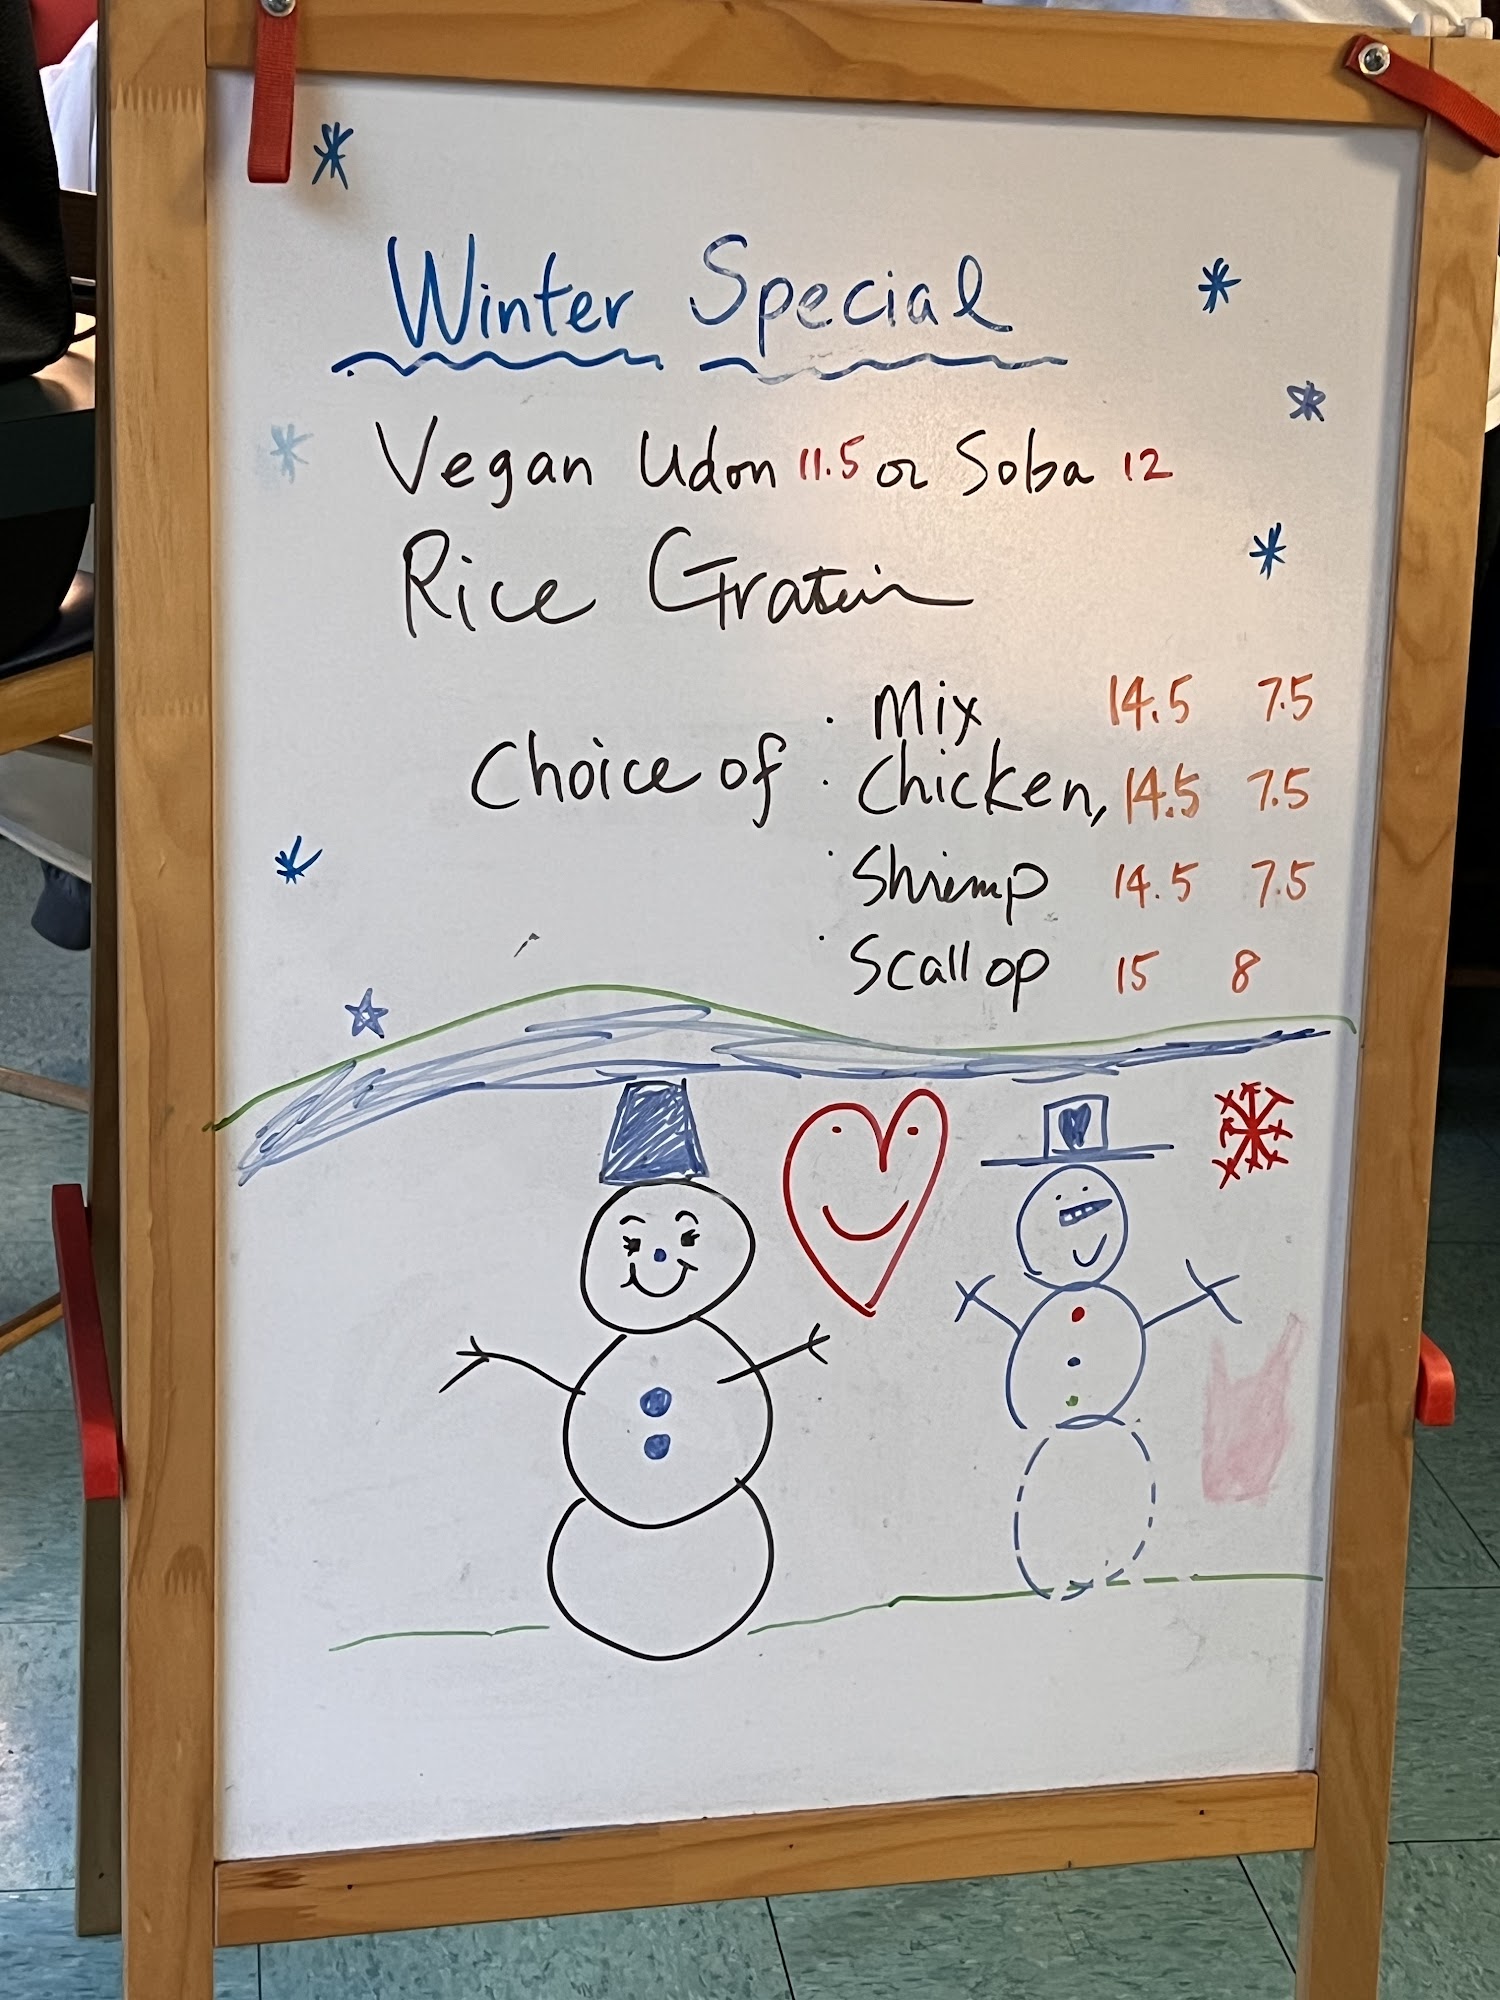 Winter Special
Vegan Udon 11.5 or Soba 12
Rice Gratin
· Mix 14.5 7.5
Choice of · Chicken, 14.5 7.5
· Shrimp 14.5 7.5
· Scallop 15 8